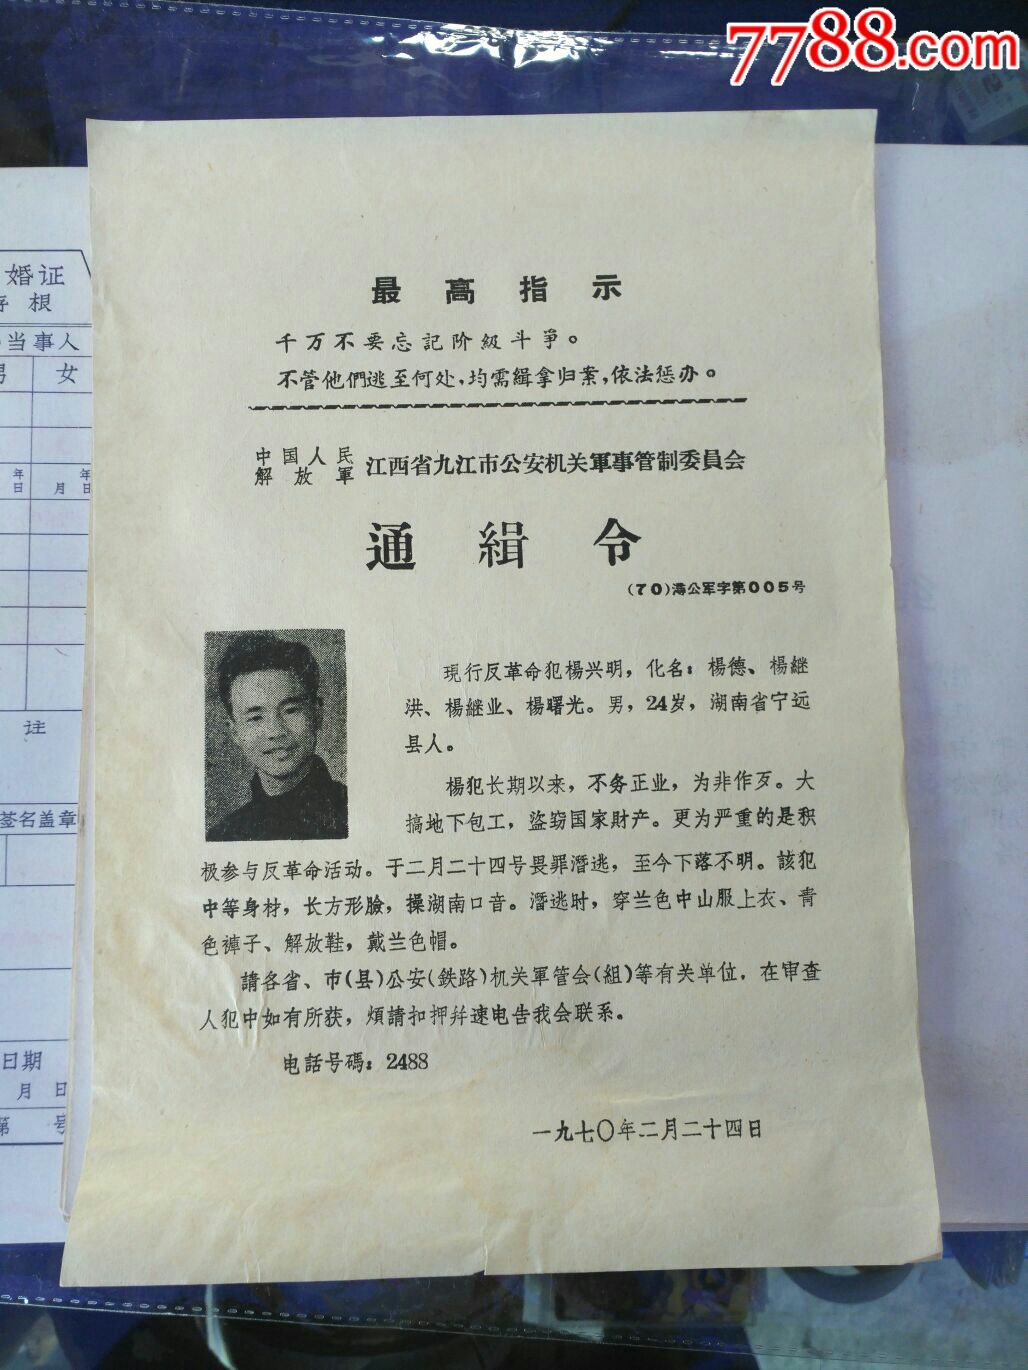 7788.com
最高指示
千万不要忘記阶級斗爭。
不管他們逃至何处，均需緝拿归案，依法惩办。
中国人民解放軍 江西省九江市公安机关軍事管制委員会
通緝令
(70)潯公军字第005号
現行反革命犯楊兴明，化名：楊德、楊継
洪、楊継业、楊曙光。男，24岁，湖南省宁远
县人。
楊犯长期以来，不务正业，为非作歹。大
搞地下包工，盜窃国家財产。更为严重的是积
极参与反革命活动。于二月二十四号畏罪潛逃，至今下落不明。該犯
中等身材，长方形臉，操湖南口音。潛逃时，穿兰色中山服上衣、青
色褲子、解放鞋，戴兰色帽。
請各省、市(县)公安(鉄路)机关軍管会(組)等有关单位，在审查
人犯中如有所获，煩請扣押幷速电告我会联系。
电話号碼：2488
一九七〇年二月二十四日
婚证
存根
当事人
男 女
年 年
日 月 日
注
签名盖章
日期
月 日
第 号